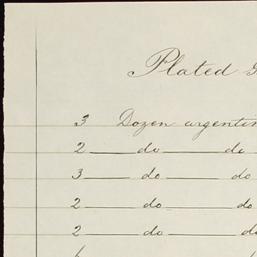 Plated
3 Dozen argentin
2 — do — do
3 — do — do
2 — do — do
2 — do — do